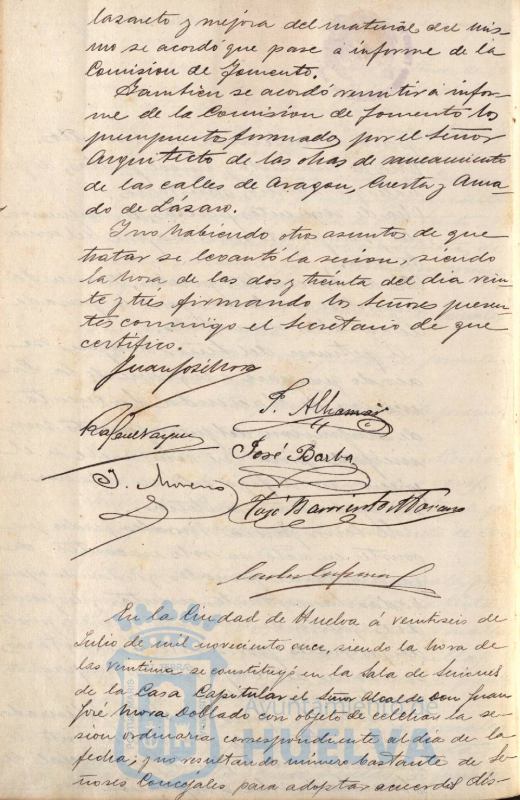 lazareto y mejora del material del mis-
mo se acordó que pase á informe de la
Comision de Fomento.
Tambien se acordó remitir á infor-
me de la Comision de Fomento los
presupuestos formados por el Señor
Arquitecto de las obras de saneamiento
de las calles de Aragon, Cuesta y Ama-
do de Lázaro.
Y no habiendo otro asunto de que
tratar se levantó la sesion, siendo
la hora de las dos y treinta del dia vein-
te y tres firmando los Señores presen-
tes conmigo el Secretario de que
certifico.
Juan José Mora
J. Alhamar
Rafael Vazquez
José Barba
J. Moreno
José Moreno
En la Ciudad de Huelva á veintiseis de
Julio de mil novecientos once, siendo la hora de
las veintiuna se constituyó en la Sala de Sesiones
de la Casa Capitular el Señor Alcalde Don Juan
José Mora Doblado con objeto de celebrar la se-
sion ordinaria correspondiente al dia de la
fecha; y no resultando número bastante de Se-
ñores Concejales para adoptar acuerdos dis-
Ayuntamiento de
HUELVA